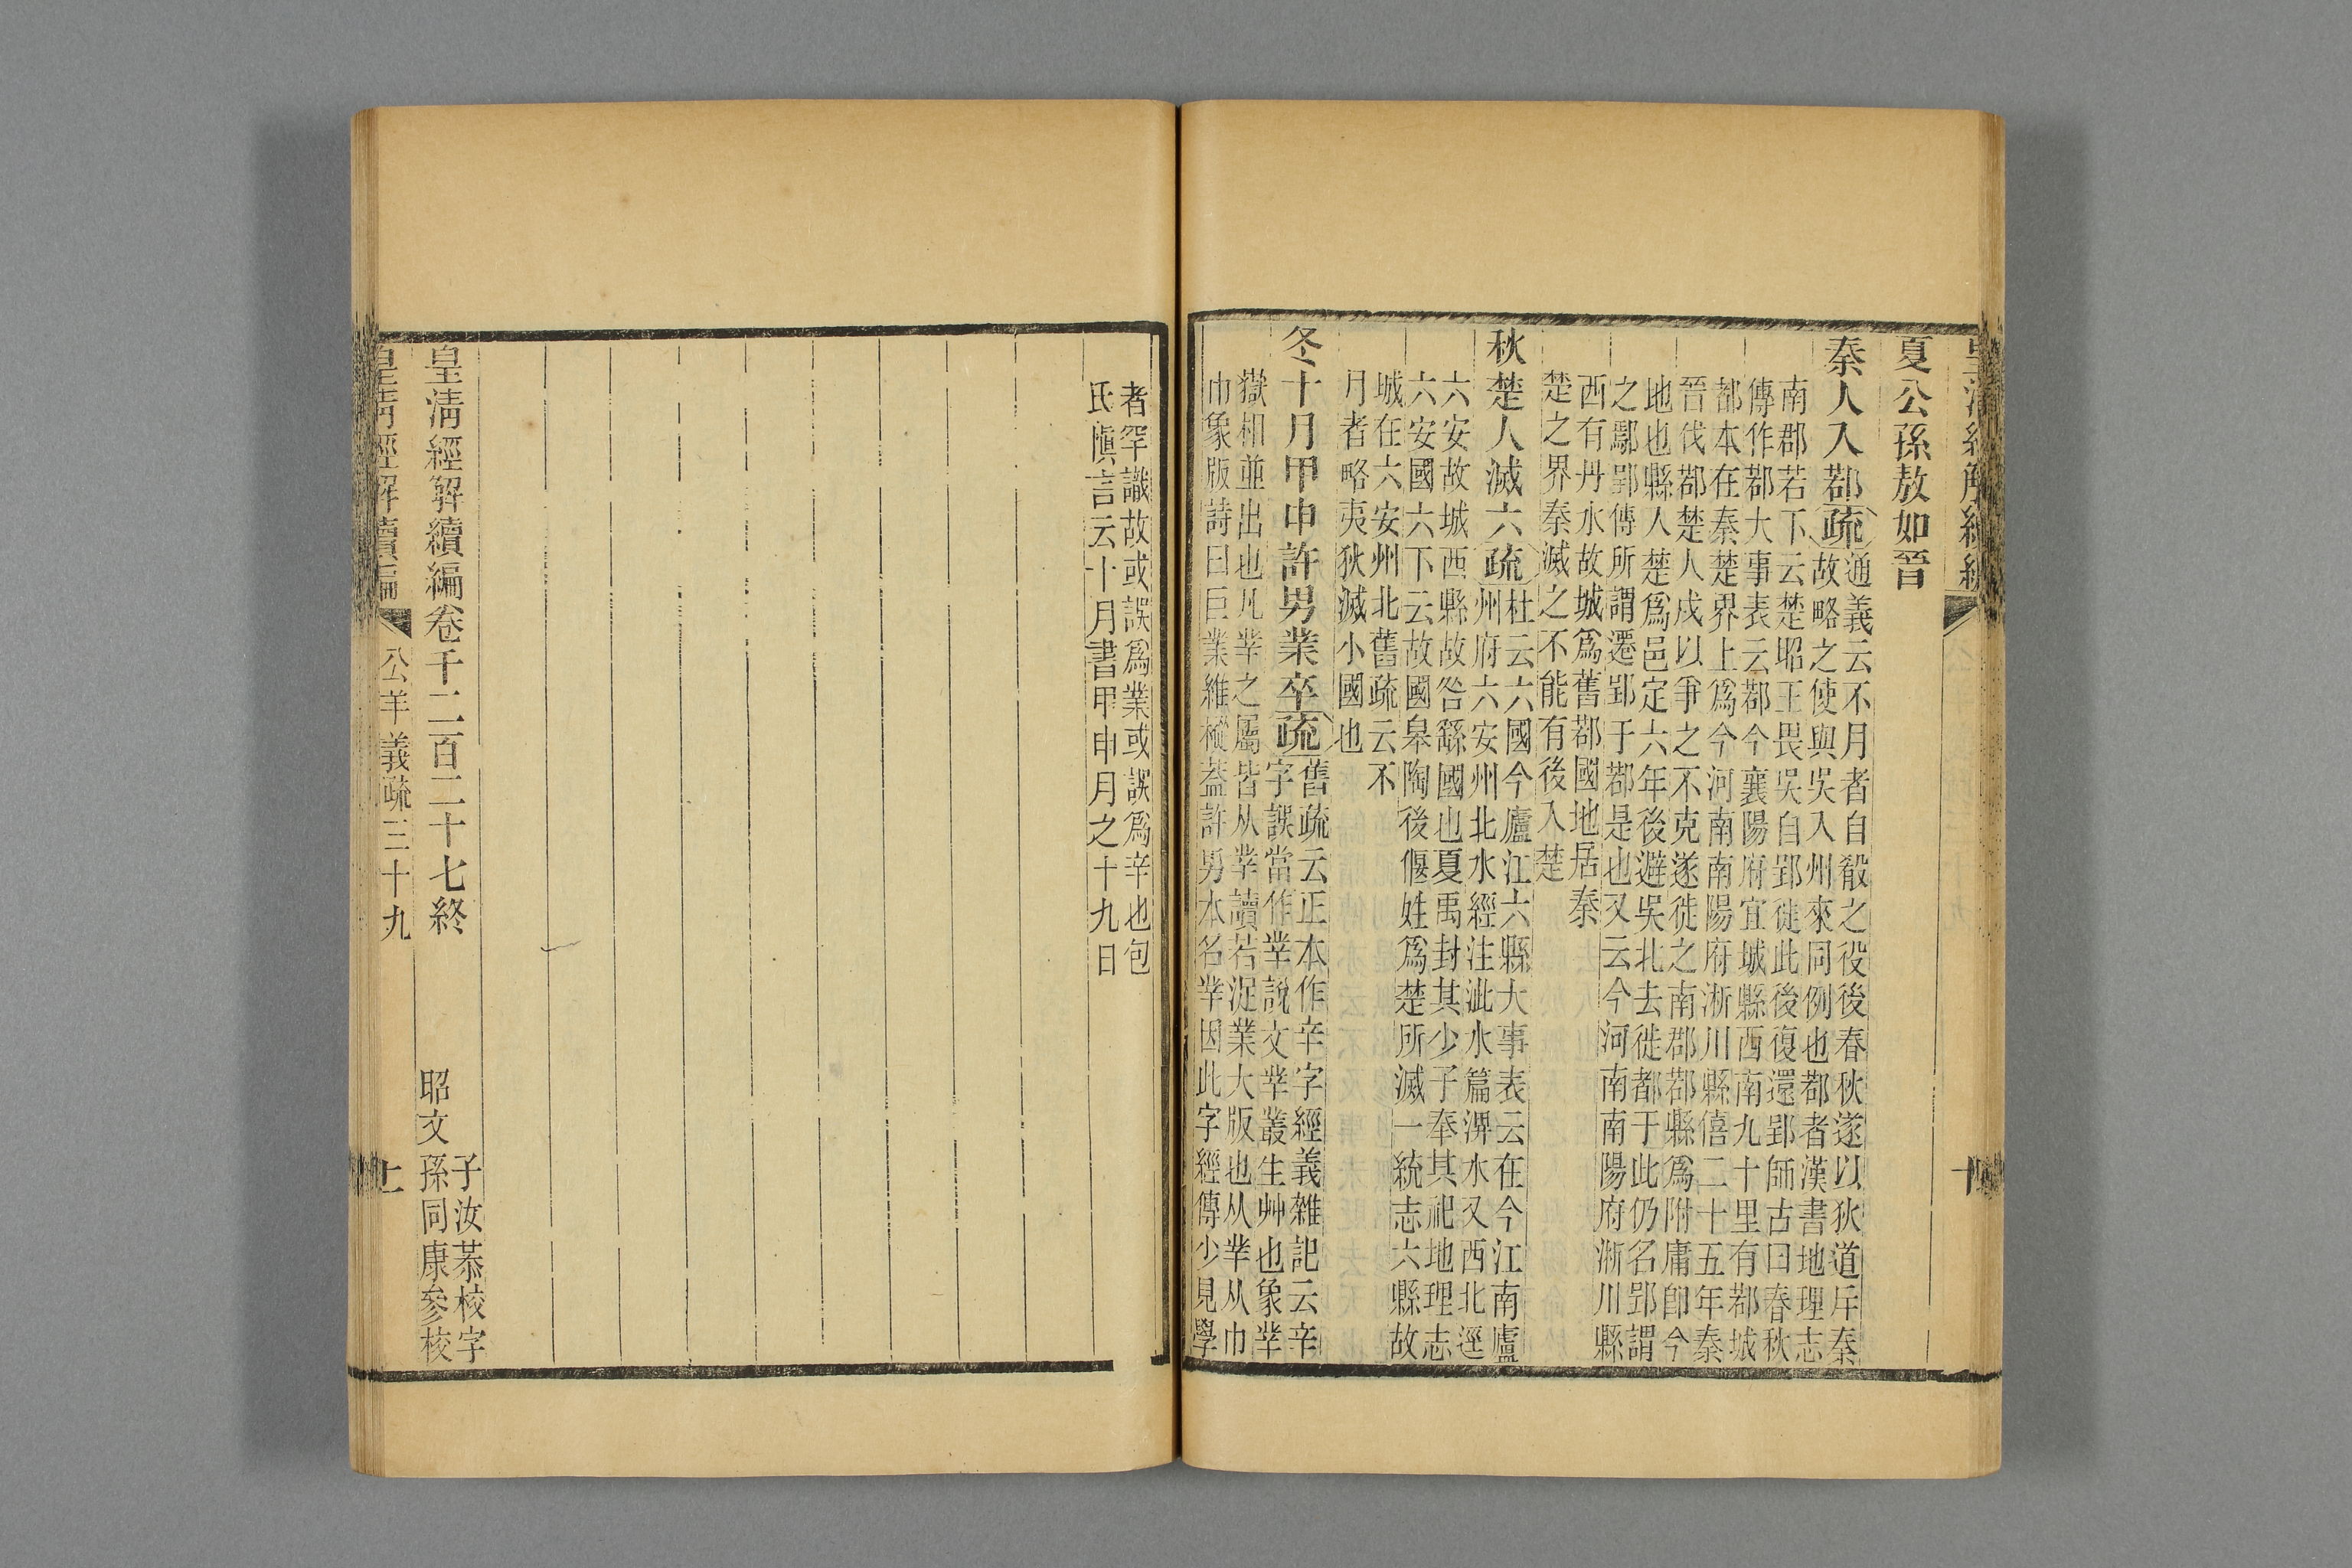 皇清經解續編 十
夏公孫敖如晉
秦人入鄀疏
通義云不月者自殽之役後春秋遂以狄道斥秦
故略之使與吳入州來同例也鄀者漢書地理志
南郡若下云楚昭王畏吳自郢徙此後復還郢師古曰春秋
傳作鄀大事表云鄀今襄陽府宜城縣西南九十里有鄀城
鄀本在秦楚界上爲今河南南陽府淅川縣僖二十五年秦
晉伐鄀楚人戍以爭之不克遂徙之南郡鄀縣爲附庸卽今
地也縣人楚爲邑定六年後避吳北去徙都于此仍名郢謂
之鄢郢傳所謂遷郢于鄀是也又云今河南南陽府淅川縣
西有丹水故城爲舊鄀國地居秦
楚之界秦滅之不能有後入楚
秋楚人滅六疏
杜云六國今廬江六縣大事表云在今江南廬
州府六安州北水經注沘水篇淠水又西北逕
六安故城西縣故咎繇國也夏禹封其少子奉其祀地理志
六安國六下云故國皋陶後偃姓爲楚所滅一統志六縣故
城在六安州北舊疏云不
月者略夷狄滅小國也
冬十月甲申許男業卒疏
舊疏云正本作辛字經義雜記云辛
字誤當作丵說文丵叢生艸也象丵
嶽相並出也凡丵之屬皆从丵讀若浞業大版也从丵从巾
巾象版詩曰巨業維樅蓋許男本名丵因此字經傳少見學
者罕識故或誤爲業或誤爲辛也包
氏愼言云十月書甲申月之十九日
皇清經解續編卷千二百二十七終
子汝恭校字
昭文孫同康參校
皇清經解續編 公羊義疏三十九